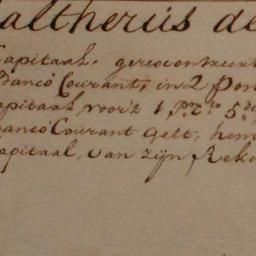 altherus de
Capitaal. gerescontreert
Banco Courant, in 2 Pon
apitaal voor't 1 P.r C.to 5 de
Banco Courant Gelt, hem
apitaal, van zijn Reke